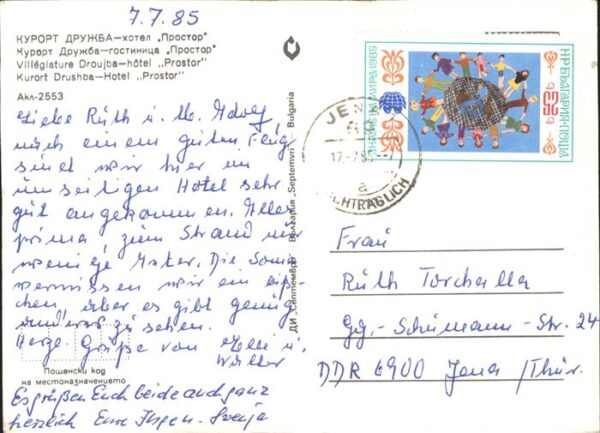 7.7.85
КУРОРТ ДРУЖБА—хотел „Простор"
Курорт Дружба—гостиница „Простор"
Villégiature Droujba—hôtel ,,Prostor"
Kurort Drushba—Hotel ,,Prostor"
Акл-2553
Liebe Ruth u.
nach einem guten Flug
sind wir hier im
Hotel sehr
gut angekommen. Alles
prima, zum Strand nur
wenige Meter. Die Sonne
vermissen wir ein biß-
chen, aber es gibt genug
anderes zu sehen.
Herzl. Grüße von u.
Walter
Es grüßen Euch beide auch ganz
herzlich Eure
Пощенски код
на местоназначението
ДИ „Септември" България „Septemvri" — Bulgaria
НР БЪЛГАРИЯ·ПОЩА
1985
JENA
17.-7.85
a
NACHTRÄGLICH
Frau
Ruth Torchalla
Gg.-Schumann-Str. 24
DDR 6900 Jena /Thür.